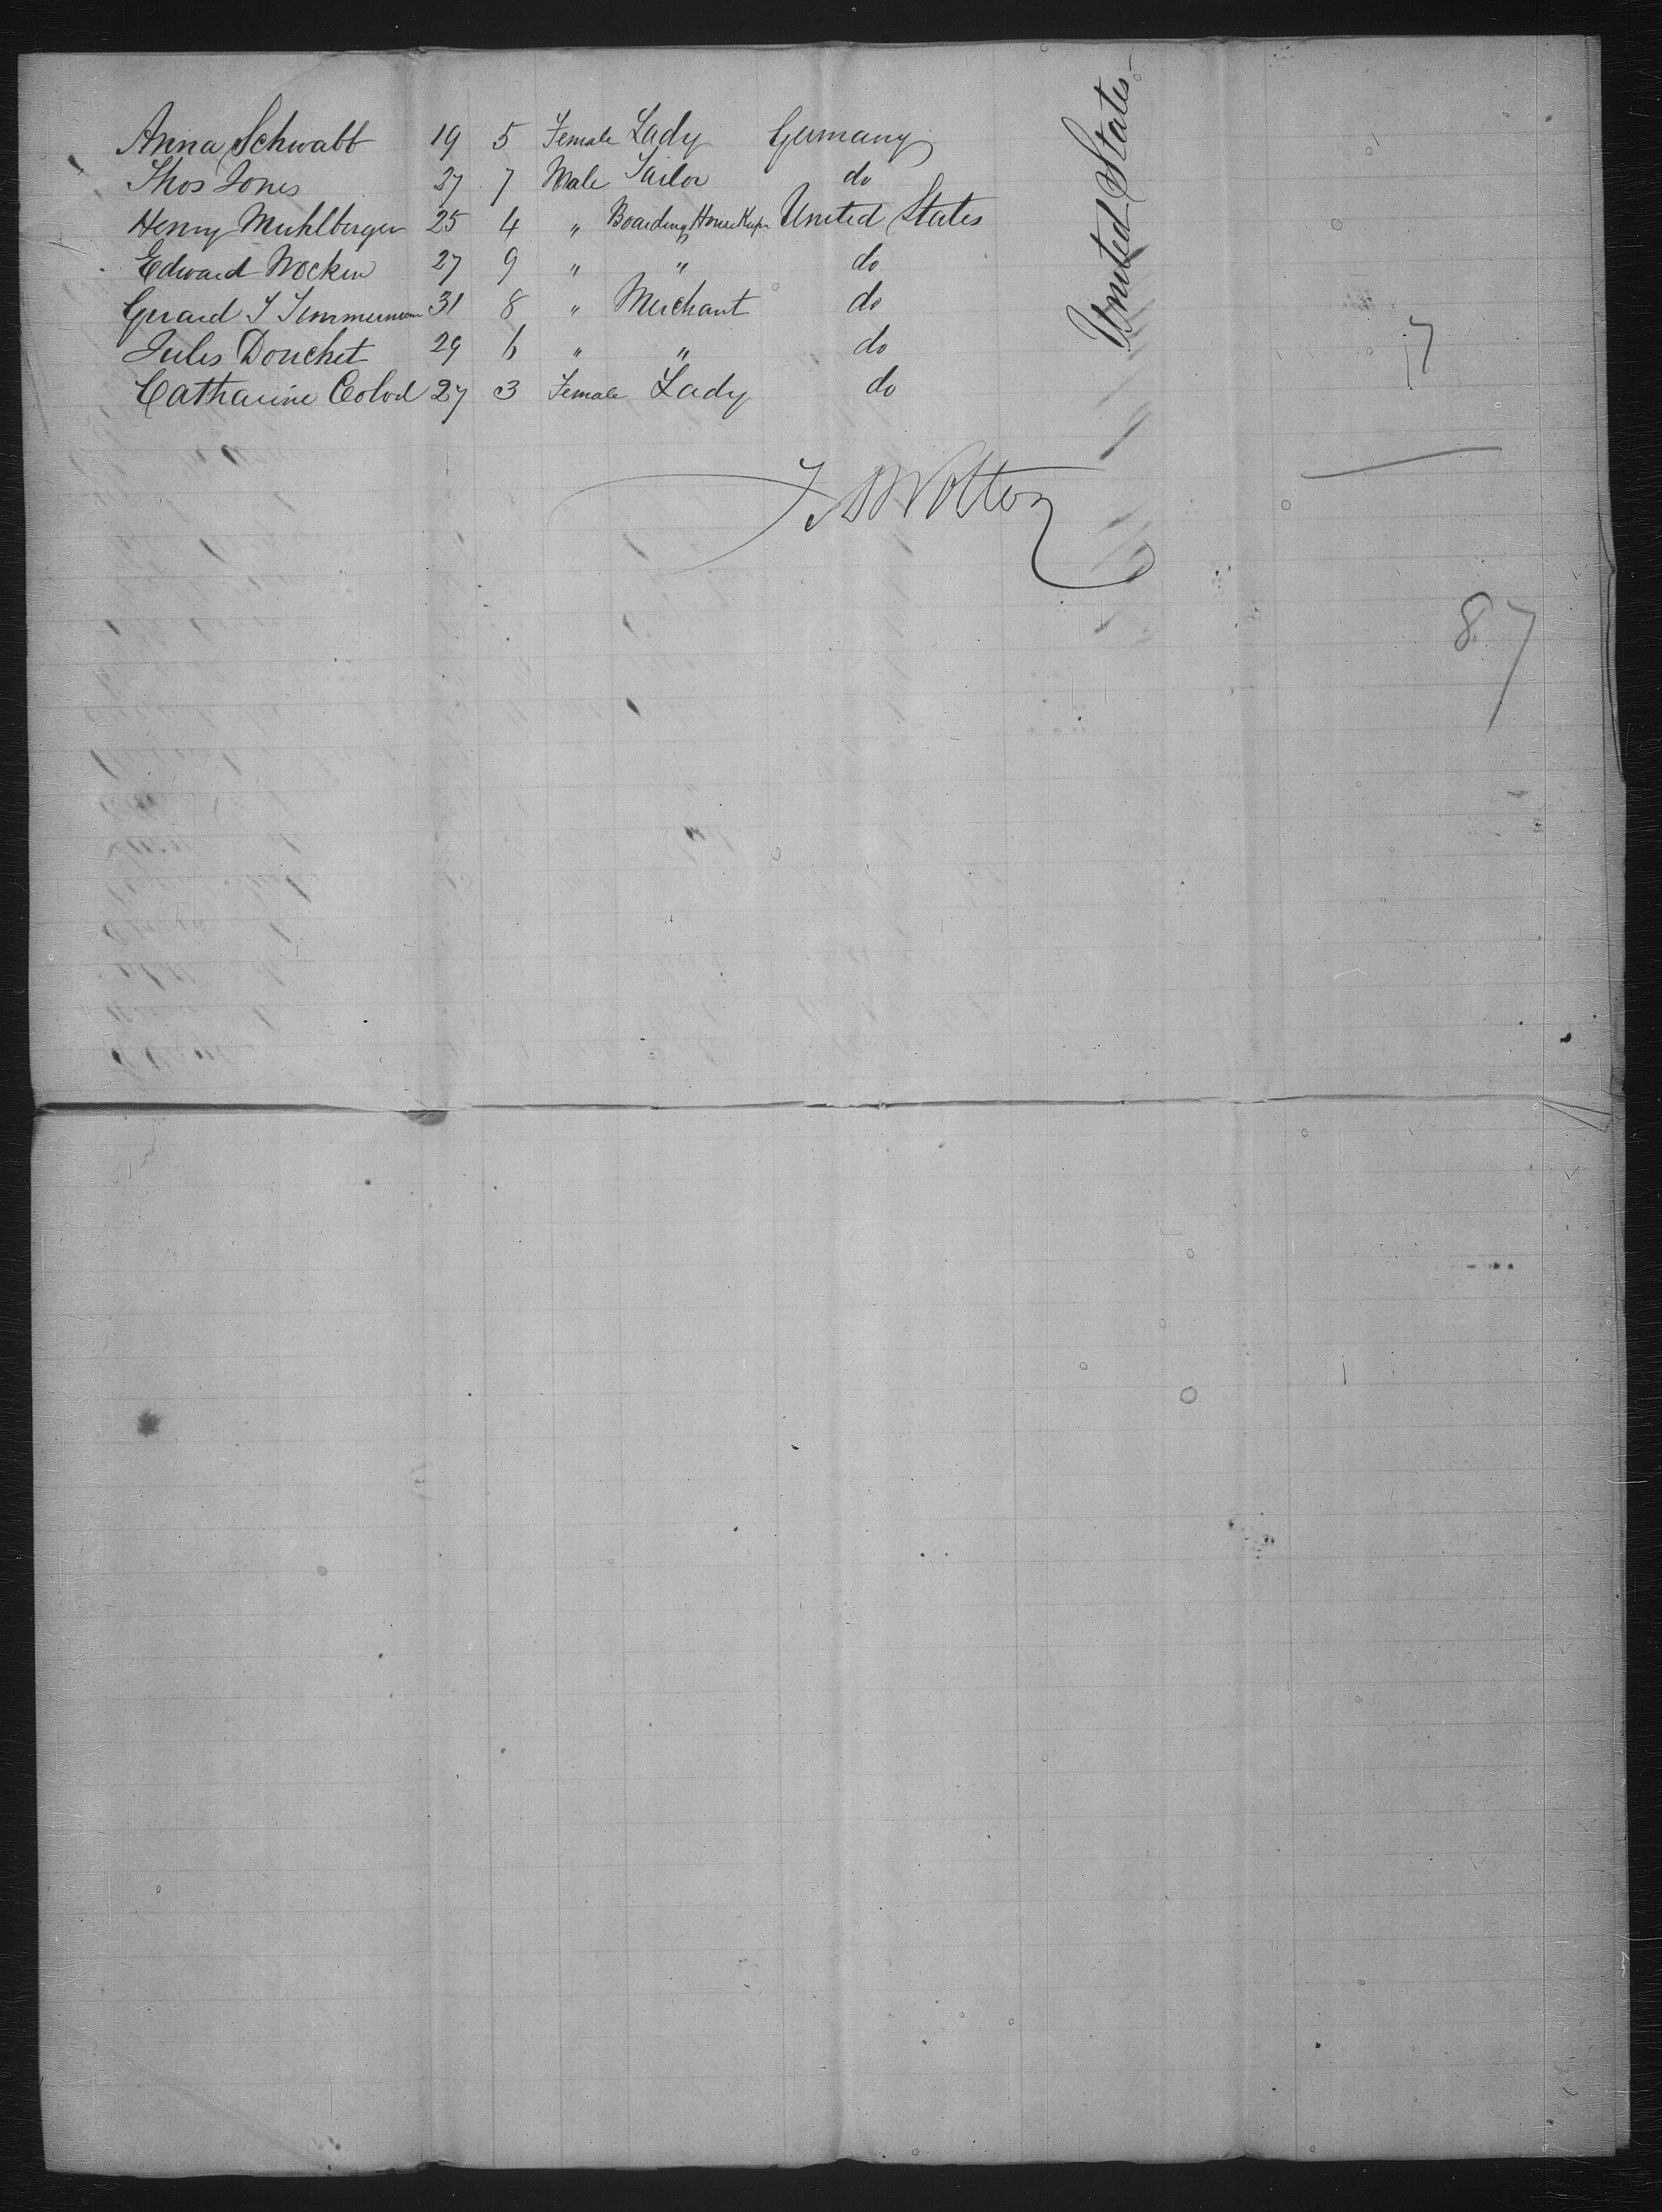 Anna Schwabb 19 5 Female Lady Germany
Thos Jones 27 7 Male Tailor do
Henry Muhlberger 25 4 " Boarding House Kepr United States
Edward Wocken 27 9 " " do
Gerard T Timmerman 31 8 " Merchant do
Jules Douchet 29 6 " " do
Catharine Colvel 27 3 Female Lady do
United States
7
J A Wotton
87